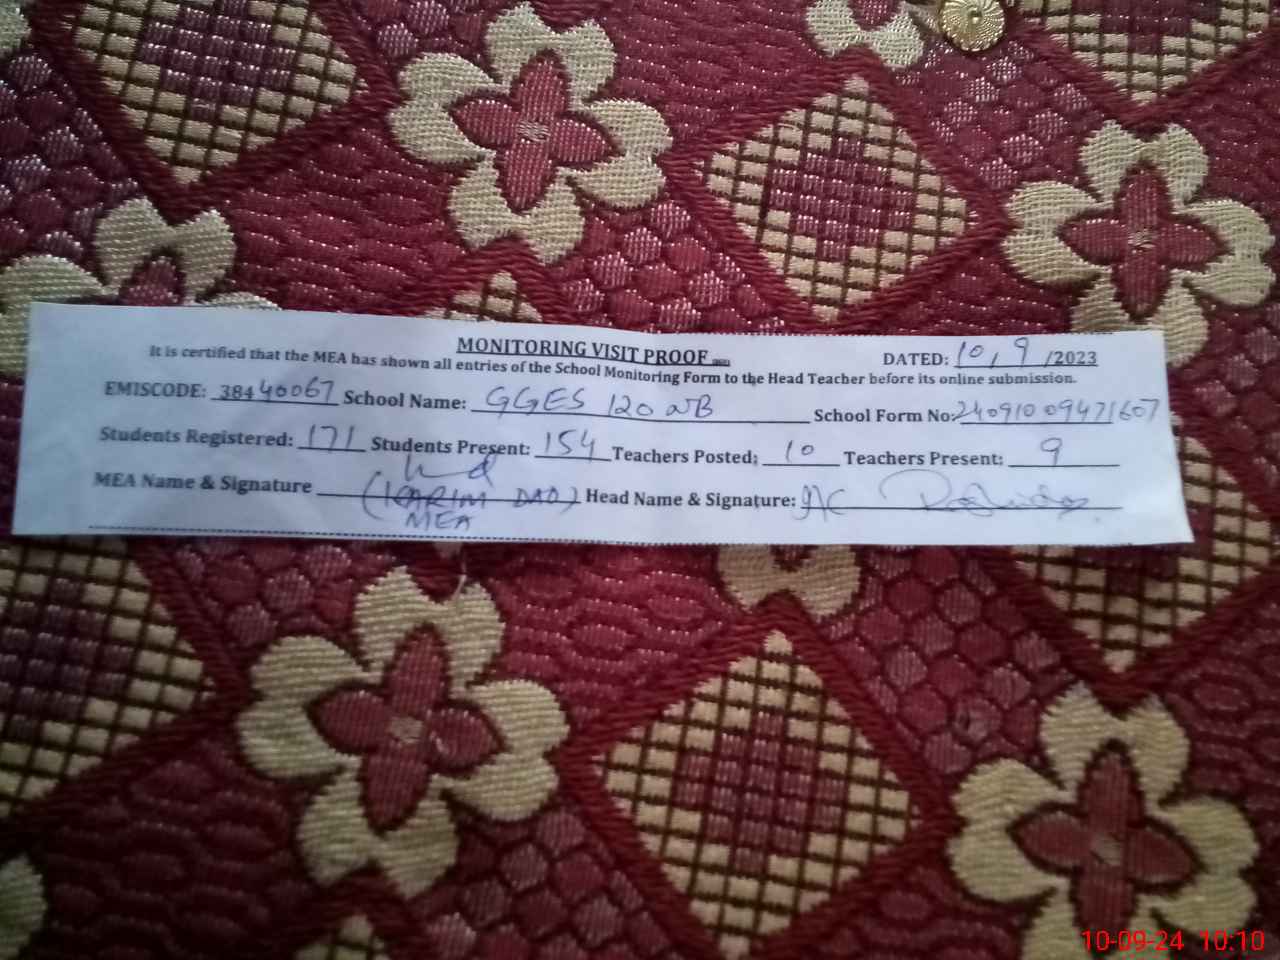 MONITORING VISIT PROOF
DATED: 10, 9 /2023
It is certified that the MEA has shown all entries of the School Monitoring Form to the Head Teacher before its online submission.
EMISCODE: 38440067 School Name: GGES 120 NB School Form No: 24091009471607
Students Registered: 171 Students Present: 154 Teachers Posted: 10 Teachers Present: 9
MEA Name & Signature (KARIM DAD) Head Name & Signature: I/C
MEA
10-09-24 10:10